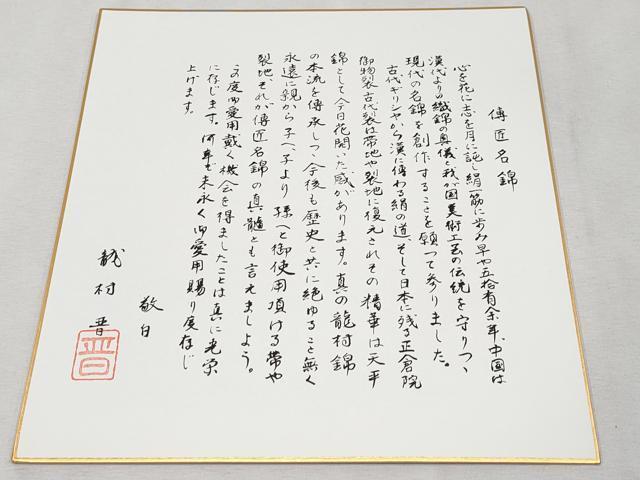 傳匠名錦
心を花に志を月に託し絹一筋に歩み早や五拾有余年、中国は
漢代よりの織錦の奥儀と我が国美術工芸の伝統を守りつゝ
現代の名錦を創作することを願って参りました。
古代ギリシャから漢に傳わる絹の道、そして日本に残る正倉院
御物裂古代裂は帯地や裂地に復元されその精華は天平
錦として今日花開いた感があります。真の龍村錦
の本流を傳承しつゝ今後も歴史と共に絶ゆること無く
永遠に親から子へ、子より孫へと御使用頂ける帯や
裂地、それが傳匠名錦の真髄とも言えましよう。
この度御愛用戴く機会を得ましたことは真に光栄
に存じます。何卒末永く御愛用賜り度存じ
上げます。
敬白
龍村晋
晋